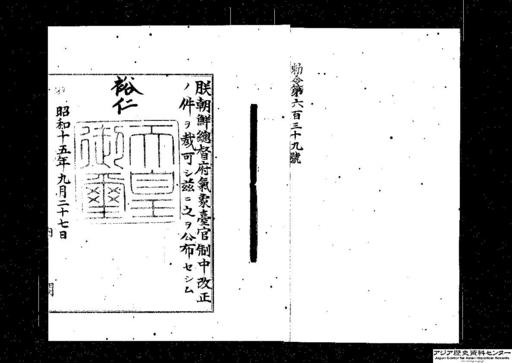 勅令第六百三十九號
朕朝鮮總督府氣象臺官制中改正
ノ件ヲ裁可シ茲ニ之ヲ公布セシム
裕仁
天皇御璽
昭和十五年九月二十七日
アジア歴史資料センター
Japan Center for Asian Historical Records